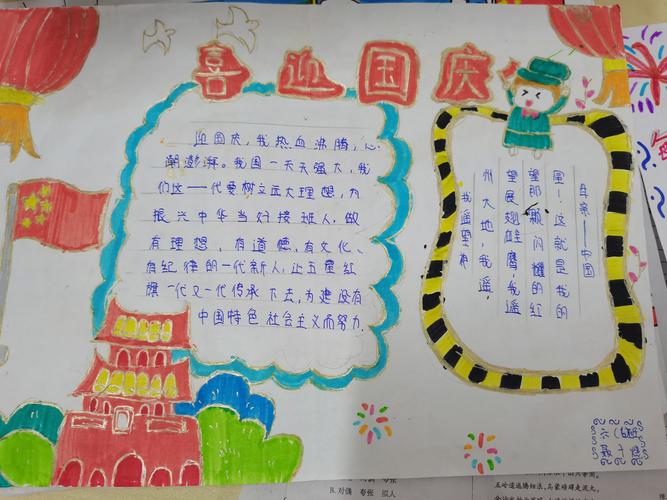 喜迎国庆
迎国庆,我热血沸腾,心
潮澎湃。我国一天天强大,我
们这一代要树立远大理想,为
振兴中华当好接班人,做
有理想,有道德,有文化、
有纪律的一代新人,让五星红
旗一代又一代传承下去,为建设有
中国特色社会主义而努力.
我遥望神
州大地,我遥
望展翅雄鹰,我遥
望那颗闪耀的红
星!这就是我的
母亲——中国
B. 对偶 夸张 拟人
五岭逶迤腾细浪,乌蒙磅礴走泥丸。